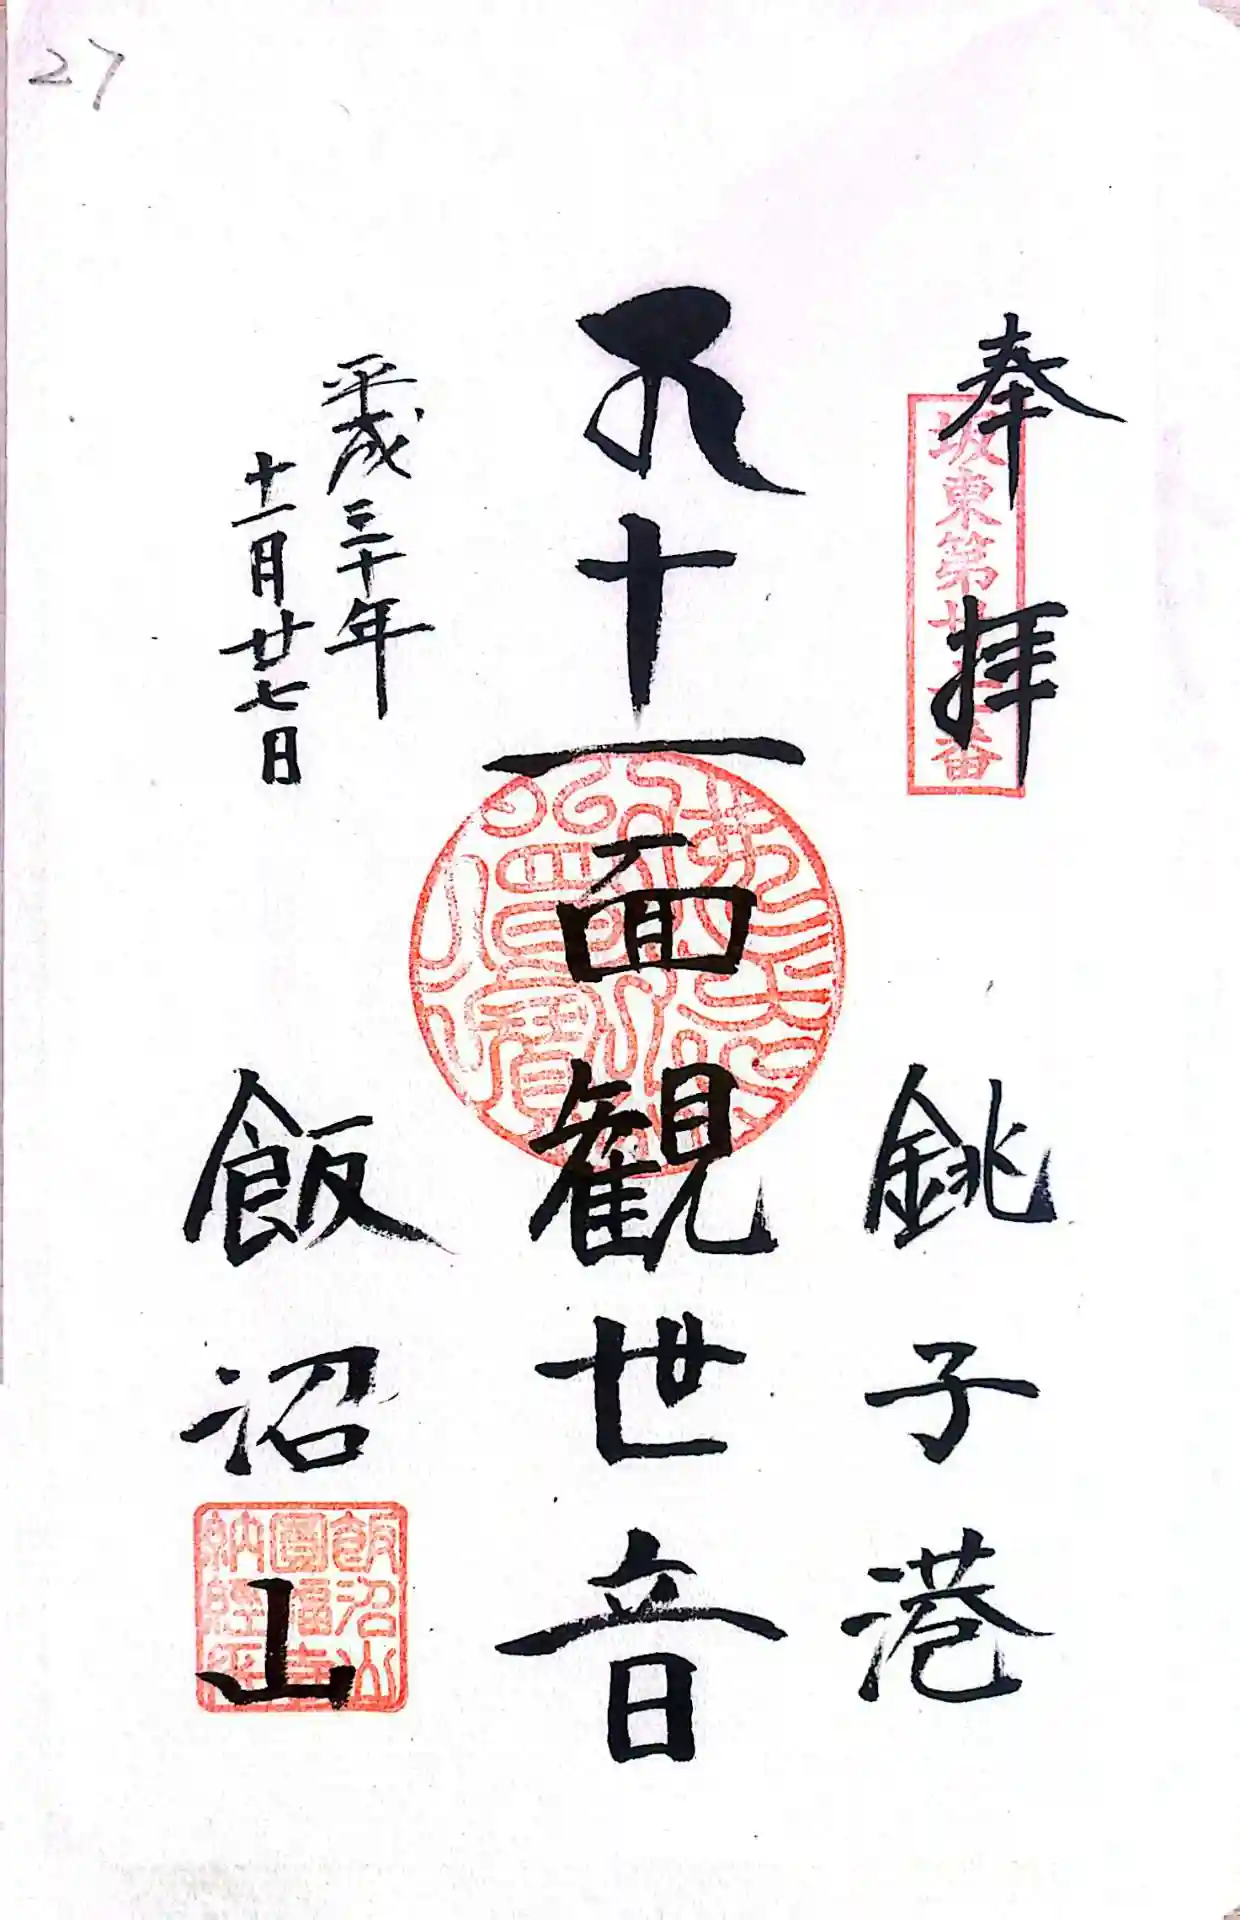 27
奉拝
坂東第廿七番
銚子港
十一面観世音
平成三十年
十一月廿七日
飯沼山
飯沼山
圓福寺